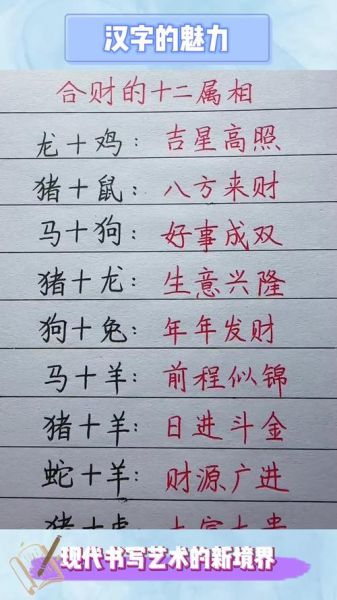 汉字的魅力
合财的十二属相
龙+鸡：吉星高照
猪+鼠：八方来财
马+狗：好事成双
猪+龙：生意兴隆
狗+兔：年年发财
马+羊：前程似锦
猪+羊：日进斗金
蛇+羊：财源广进
猪+虎：大富大贵
现代书写艺术的新境界